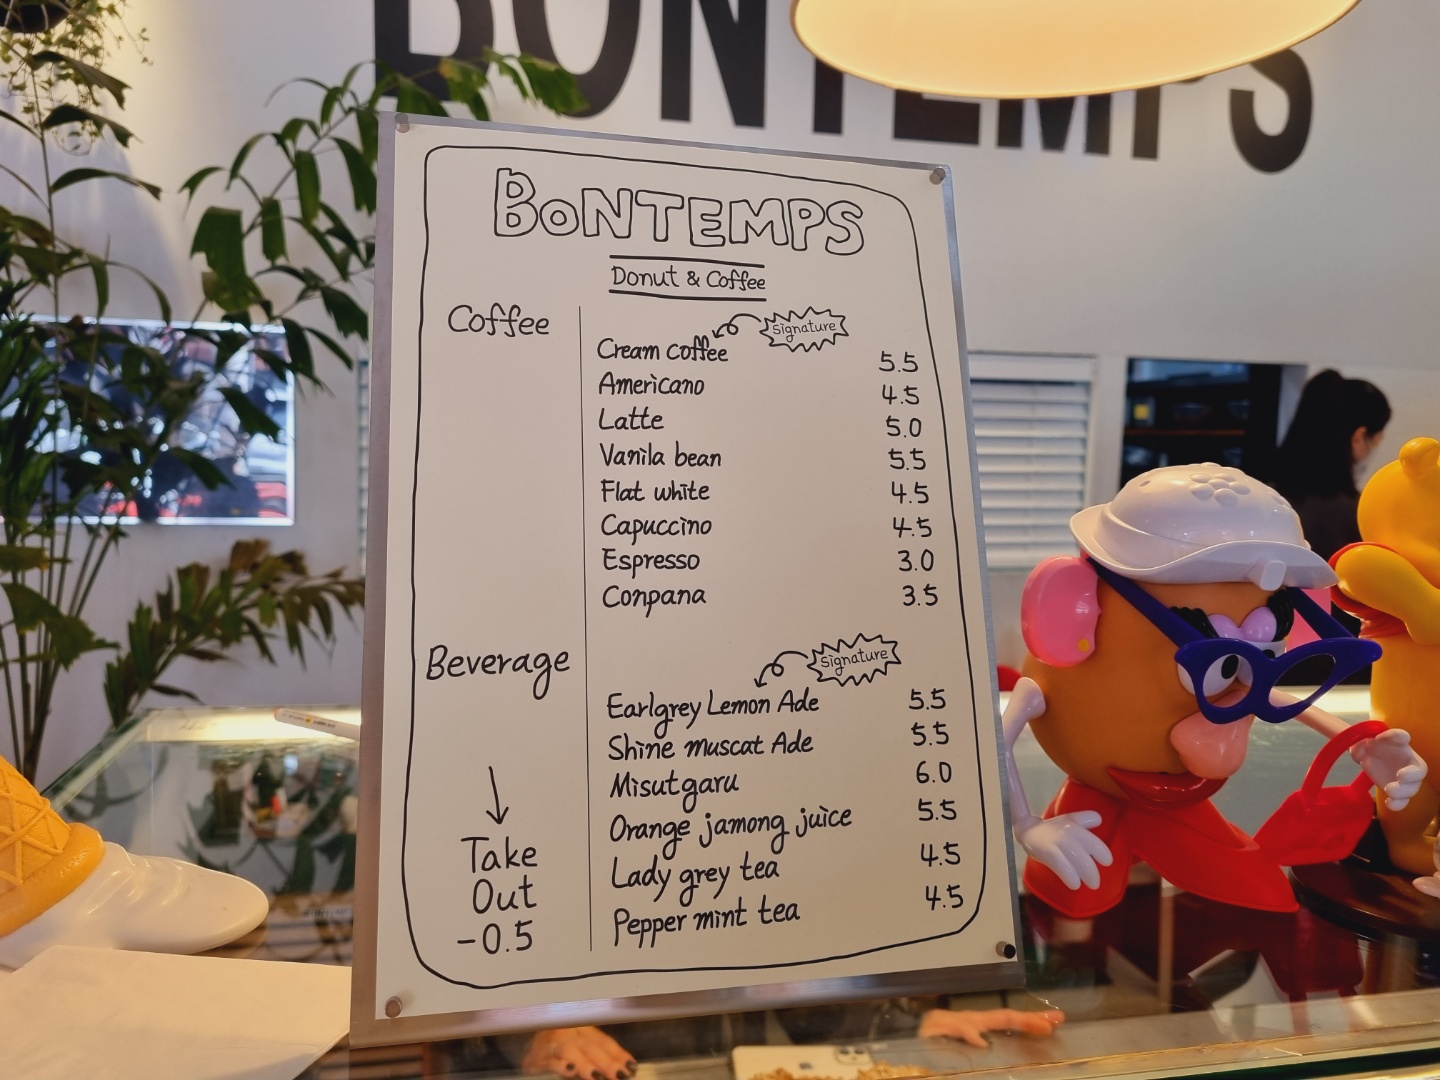 BONTEMPS
BONTEMPS
Donut & Coffee
Coffee
Signature
Cream coffee 5.5
Americano 4.5
Latte 5.0
Vanila bean 5.5
Flat white 4.5
Capuccino 4.5
Espresso 3.0
Conpana 3.5
Beverage
Signature
Earlgrey Lemon Ade 5.5
Shine muscat Ade 5.5
Misutgaru 6.0
Orange jamong juice 5.5
Lady grey tea 4.5
Pepper mint tea 4.5
Take
Out
-0.5